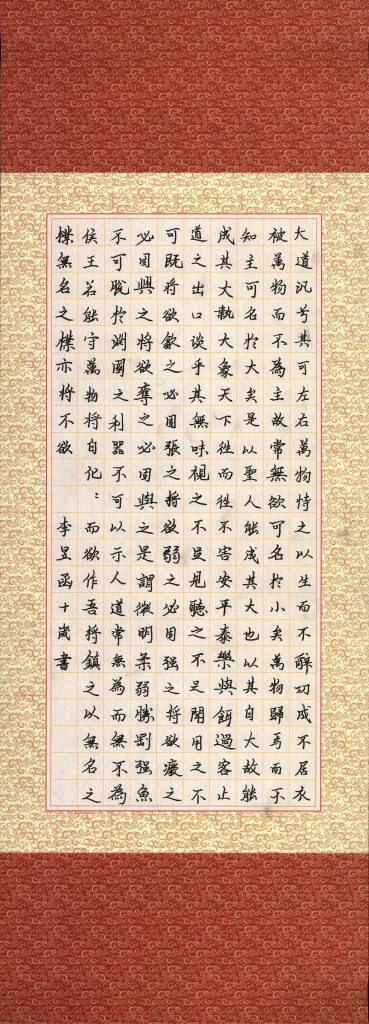 大道汎兮其可左右萬物恃之以生而不辭功成不居衣
被萬物而不為主故常無欲可名於小矣萬物歸焉而不
知主可名於大矣是以聖人能成其大也以其自大故能
成其大執大象天下往而往不害安平泰樂與餌過客止
道之出口淡乎其無味視之不足見聽之不足聞用之不
可既將欲歙之必固張之將欲弱之必固强之將欲廢之
必固興之將欲奪之必固與之是謂微明柔弱勝剛强魚
不可脫於淵國之利器不可以示人道常無為而無不為
侯王若能守萬物將自化：而欲作吾將鎮之以無名之
樸無名之樸亦將不欲 李昱函十歲書